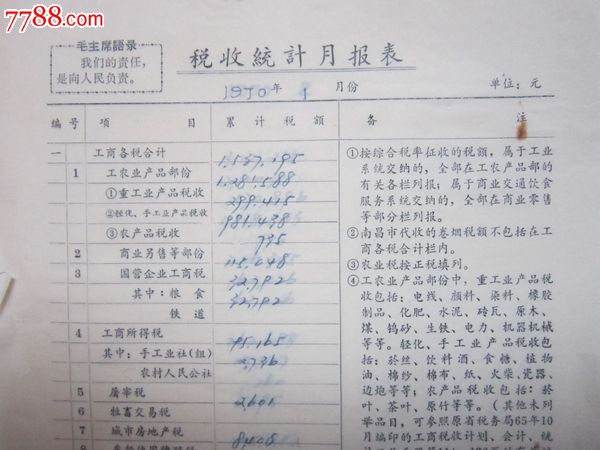 7788.com
毛主席語录
我们的责任，
是向人民负责。
税收統計月报表
1970年 1 月份
单位：元
编号 項目 累计税額 备注
一 工商各税合计 1,537,195
1 工农业产品部份 1,281,588
①重工业产品税收 299,415
②轻化、手工业产品税收 981,438
③农产品税收 735
2 商业另售等部份 115,048
3 国营企业工商税 32,792
其中：粮食 32,792
铁道
4 工商所得税 95,165
其中：手工业社(組)
农村人民公社
5 屠宰税
6 牲畜交易税
7 城市房地产税
①按综合税率征收的税額，属于工业
系统交纳的，全部在工农产品部的
有关各栏列报；属于商业交通饮食
服务系统交纳的，全部在商业零售
等部分栏列报。
②南昌市代收的卷烟税額不包括在工
商各税合计栏内。
③农业税按正税填列。
④工农业产品部份中，重工业产品税
收包括：电线、顏料、染料、橡胶
制品、化肥、水泥、砖瓦、原木、
煤、钨砂、生铁、电力、机器机械
等等。轻化、手工业产品税收包
括：菸丝、饮料酒、食糖、植物
油、棉纱、棉布、纸、火柴、瓷器、
边炮等等；农产品税收包括：菸
叶、茶叶、原竹等等。（其他未列
举品目，可参照原省税务局65年10
月编印的工商税收计划、会计、统